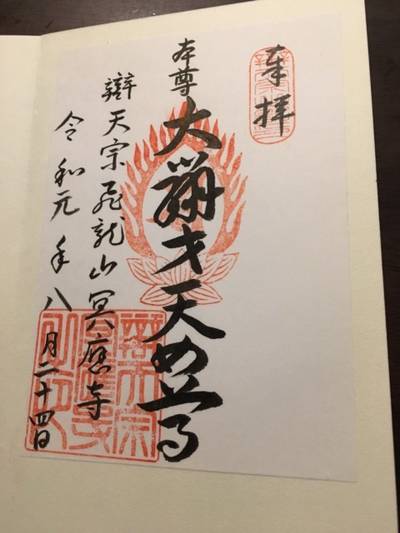 奉拝
本尊
大辯才天女尊
辯天宗飛龍山冥應寺
令和元年八月二十四日